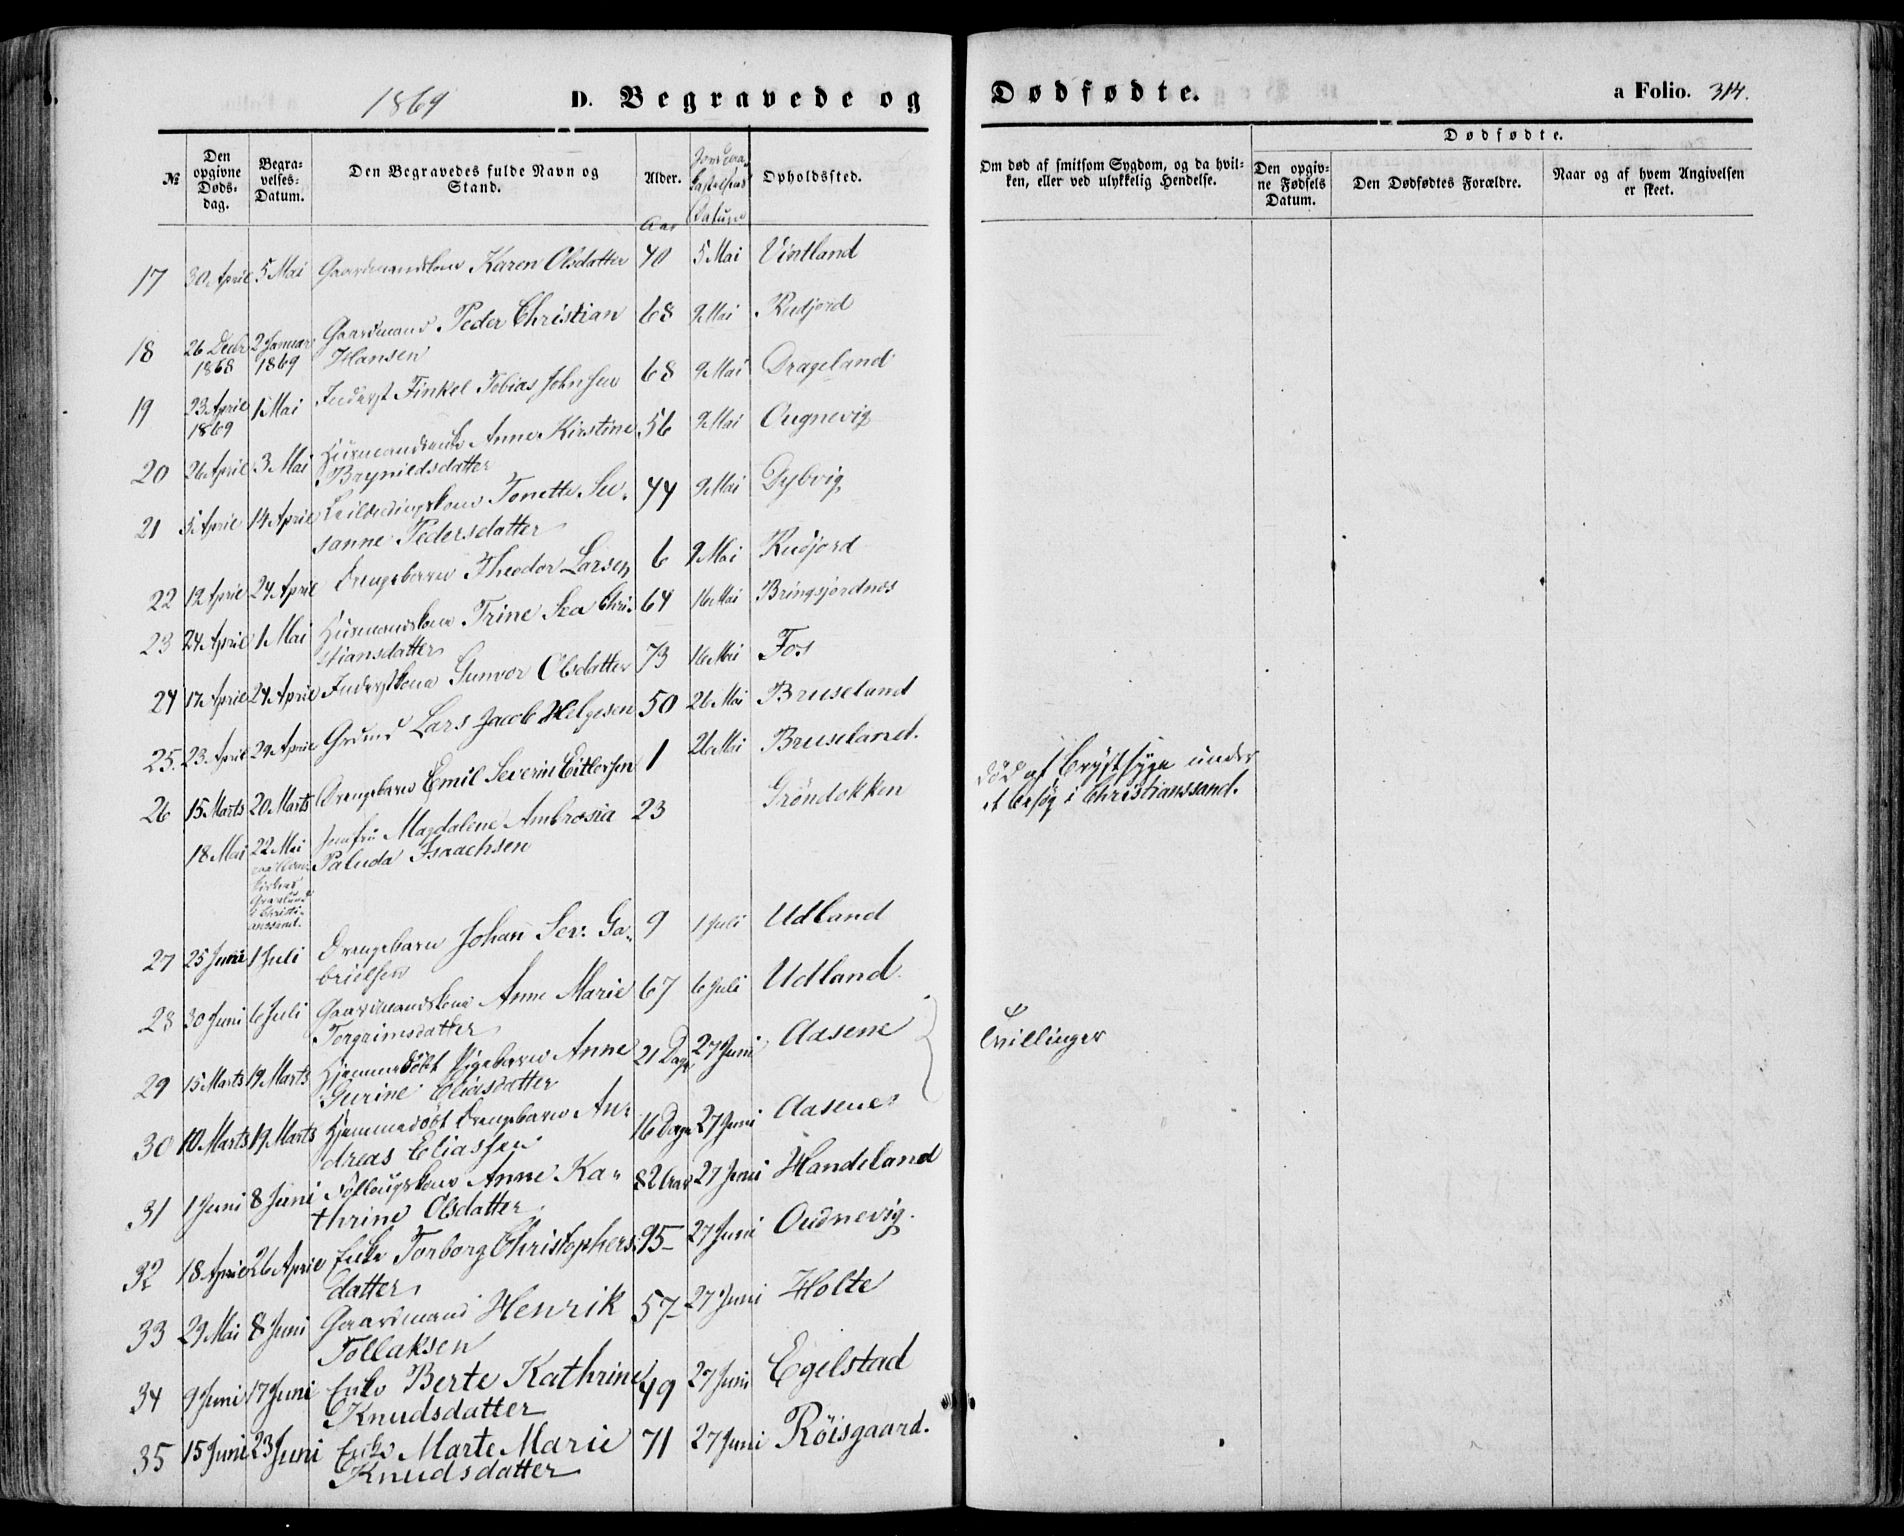 1869
D. Begravede og
Dødfødte.
a Folio. 314.
№
Den opgivne Døds-dag.
Begra-velses-Datum.
Den Begravedes fulde Navn og Stand.
Alder.
Aar
Datum
Opholdssted.
Om død af smitsom Sygdom, og da hvil-
ken, eller ved ulykkelig Hendelse.
Dødfødte.
Den opgiv-ne Fødsels Datum.
Den Dødfødtes Forældre.
Naar og af hvem Angivelsen er skeet.
17 30 April 5 Mai Gaardmandskone Karen Olsdatter 40 5 Mai Vintland
18 26 Decbr 1868 2 Januar 1869 Gaardmand Peder Christian 68 9 Mai Rudjord
Hansen
19 23 April 1869 1 Mai Inderst Finkel Tobias Johnsen 68 9 Mai Drageland
20 26 April 3 Mai Husmandsenke Anne Kirstine 56 9 Mai Ougnevig
Brynildsdatter
21 5 April 14 April Tonette Su-
44 9 Mai Dybvig
sanne Pedersdatter
22 12 April 24 April Drengebarn Theodor Larsen 6 9 Mai Rudjord
23 24 April 1 Mai Husmandskone Trine Lea Chri- 64 16 Mai Bringsjordnes
stiansdatter
24 17 April 24 April Inderstkone Gunvor Olsdatter 73 16 Mai Fos
25. 23 April 29 April Grmd Lars Jacob Helgesen 50 26 Mai Bruseland
26 15 Marts 20 Marts Drengebarn Emil Severin Eitlersen 1 26 Mai Bruseland.
18 Mai 22 Mai Jomfru Magdalene Ambrosia 23 Gröndokken
Paluda Isaachsen
Kirkes
Gravlund
i Christi-
anssand.
død af Brystsyge under
et besøg i Christianssand.
27 25 Juni 1 Juli Drengebarn Johan Sev. Ga- 9 1 Juli Udland
brielsen
28 30 Juni 6 Juli Gaardmandskone Anne Marie 67 6 Juli Udland.
Torgrimsdatter
29 15 Marts 19 Marts Hjemmedöbt Pigebarn Anne 21 Dage 27 Juni Aasene
Gurine Eliasdatter
Tvillinger
30 10 Marts 19 Marts Hjemmedöbt Drengebarn An- 16 Dage 27 Juni Aasene
dreas Eliassen
31 1 Juni 8 Juni Föllougskone Anne Ka- 82 Aar 27 Juni Handeland
thrine Olsdatter
32 18 April 26 April Enke Torborg Christophers- 95 27 Juni Oudnevig.
datter
33 29 Mai 8 Juni Gaardmand Henrik 57 27 Juni Holte
Tollaksen
34 9 Juni 17 Juni Enke Berte Kathrine 49 27 Juni Egelstad
Knudsdatter
35 15 Juni 23 Juni Enke Marte Marie 71 27 Juni Röisgaard.
Knudsdatter